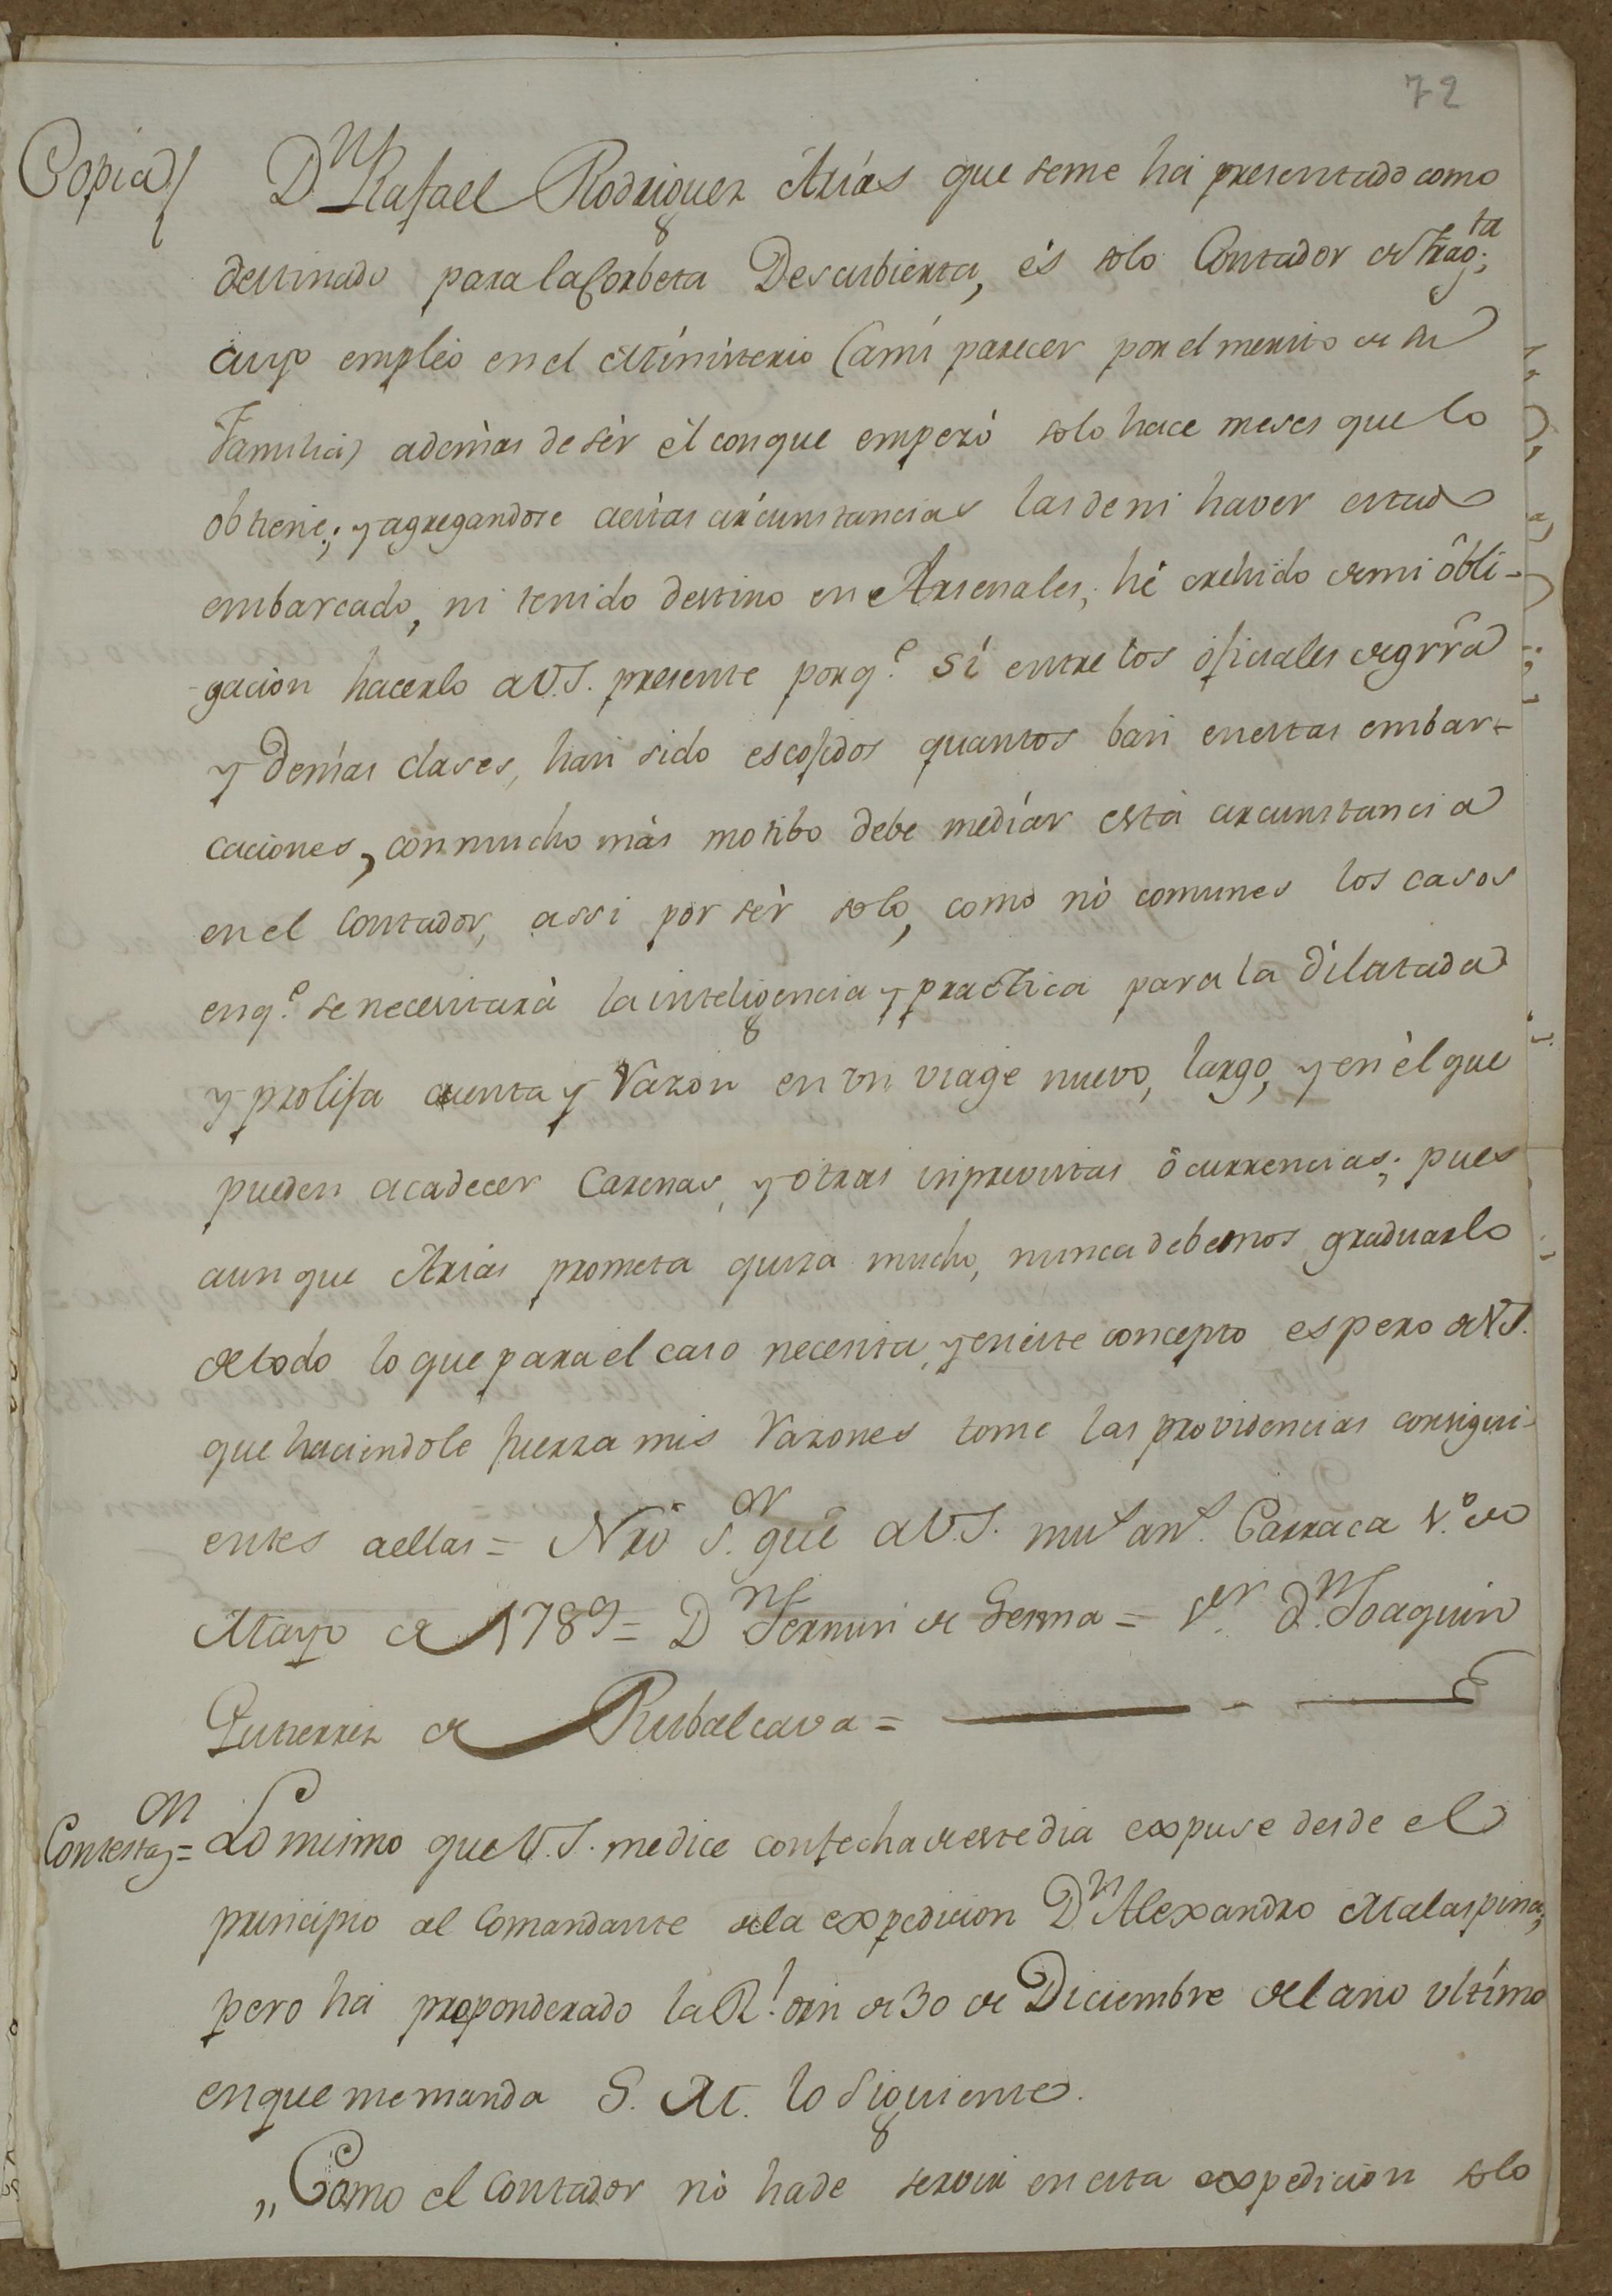 72
Copia/ Dn. Rafael Rodriguez Arias que seme há presentado como
destinado para la Corbeta Descubierta, és solo Contador de Fragta;
cuyo empléo en el Ministerio (ami parecer por el merito de su
Familia) ademas de sér él conque empezó solo hace meses que lo
obtiene; y agregandose aestas circunstancias las de ni haver estado
embarcado, ni tenido destino en Arsenales; hé crehido de mi óbli-
gacion hacerlo a V.S. presente porq.e sí entre los óficiales de grrâ
y demas clases, han sido escojidos quantos ban enestas embar-
caciones, con mucho más motibo debe mediar está circunstancia
en el Contador, assi por sér solo, como nó comunes los casos
enq.e se necesitará la inteligencia y practica para la dilatada
y prolija cuenta y razon en vn viage nuevo, largo, y en él que
pueden acadecer Carenas, y otras inprevistas ócurrencias; pues
aun que Arias prometa quiza mucho, nunca debemos graduarlo
de todo lo que para el caso necesita, y eneste concepto espero de V.S.
que haciendole fuerza mis razones tome las providencias consigui-
entes aellas = Nrô S.or gûe a V.S. mus. ans. Carraca 1.º de
Mayo de 1789 = Dn Fermin de Sesma = Sr. Dn. Joaquin
Gutierrez de Rubalcava =
Contestaz.on = Lo mismo que V.S. me dice confecha de este dia expuse desde el
principio al Comandante de la expedicion Dn. Alexandro Malaspina;
pero há preponderado la Rl. orn de 30 de Diciembre del ano ultimo
enque me manda S. M. lo siguiente.
,, Como el Contador nó hade servir en esta expedicion solo